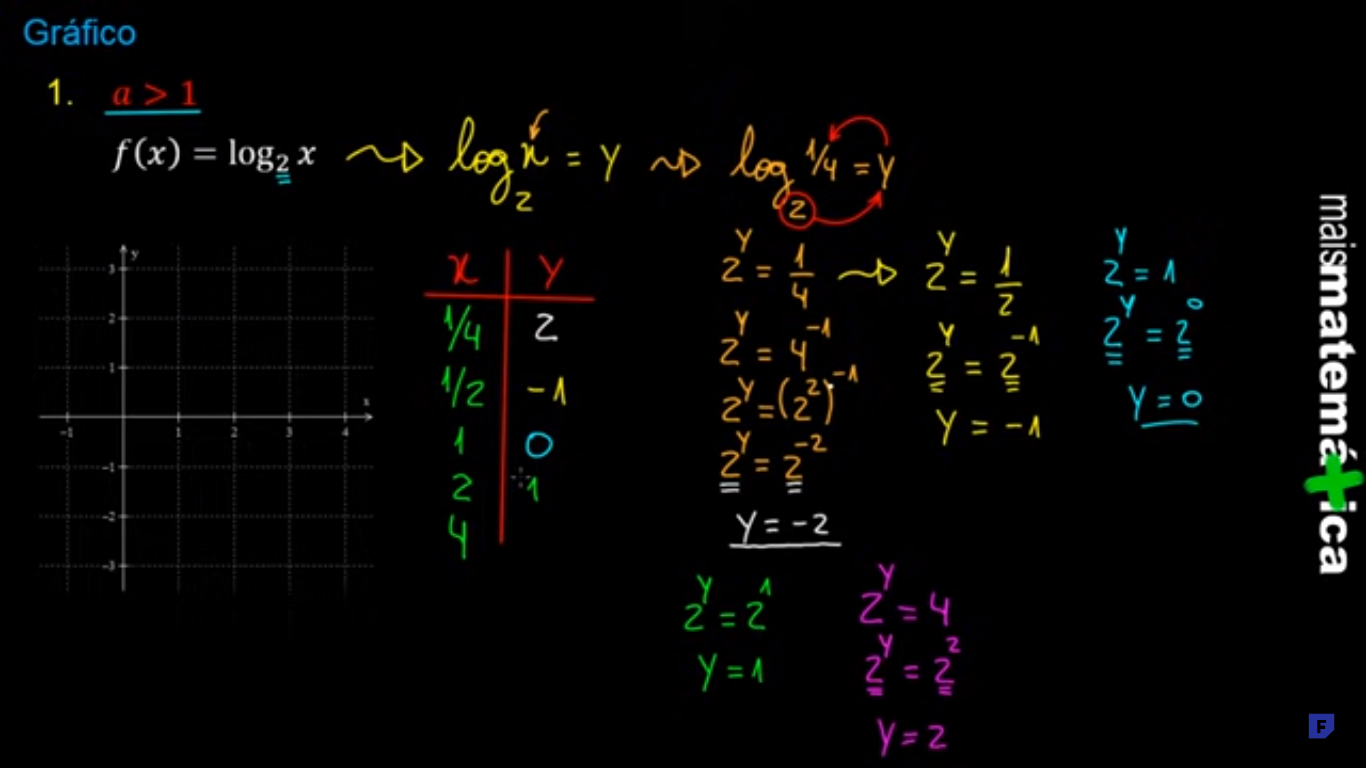 Gráfico
1. a > 1
f(x) = log₂ x
log₂ x = y
log₂ 1/4 = y
x y
1/4 2
1/2 -1
1 0
2 1
4
y
3
2
1
x
-1 1 2 3 4
-1
-2
-3
2^y = 1/4
2^y = 4^-1
2^y = (2^2)^-1
2^y = 2^-2
y = -2
2^y = 1/2
2^y = 2^-1
y = -1
2^y = 1
2^y = 2^0
y = 0
2^y = 2^1
y = 1
2^y = 4
2^y = 2^2
y = 2
maismatemática
F